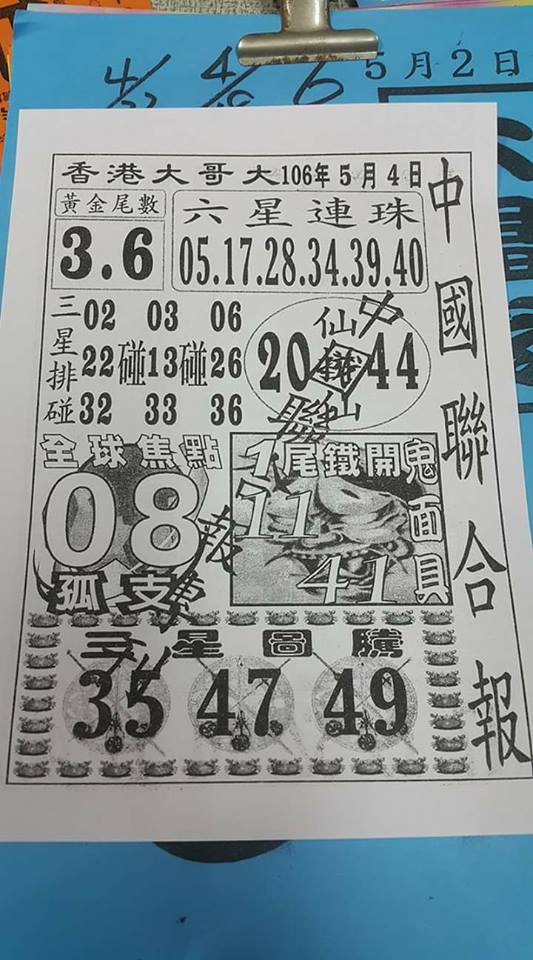 5月2日
香港大哥大106年5月4日
中國聯合報
黃金尾數
3.6
六星連珠
05.17.28.34.39.40
三星排碰
02 03 06
22碰13碰26
32 33 36
20 44
仙
仙
中
聯
報
全球焦點
08
孤支
1尾鐵開
鬼面具
11
41
三星圖騰
35 47 49